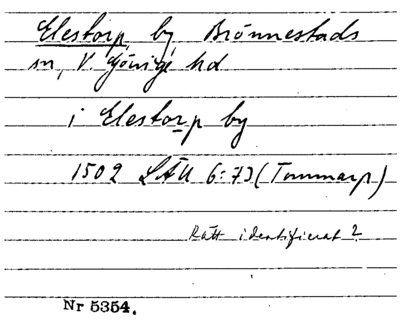 Elestorp, by, Brönnestads
sn, V. Göinge hd
i Elestorp by
1502 LÄU 6:73 (Tommarp)
Rätt identifierat?
Nr 5354.